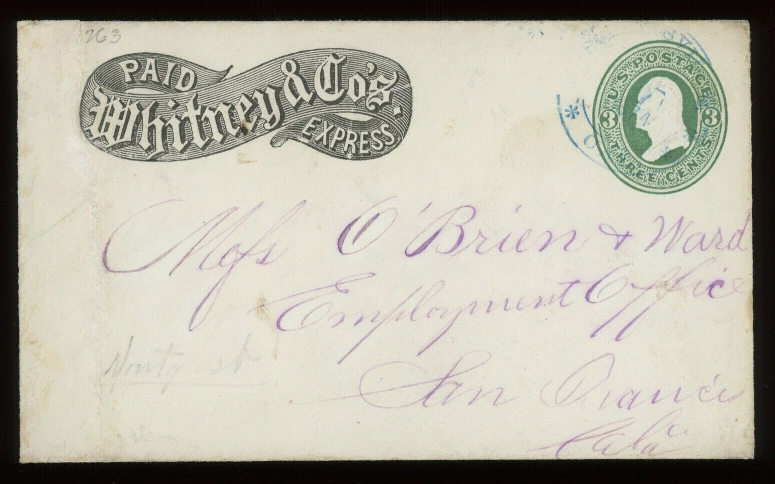 263
PAID
Whitney & Co's.
EXPRESS.
U.S. POSTAGE
3 3
THREE CENTS
Mess O'Brien & Ward
Employment Office
San Francis
Cala
Montg. st